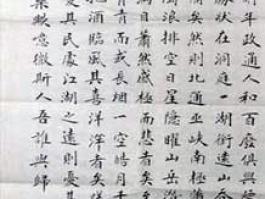 年政通人和百廢俱興
勝狀在洞庭一湖銜遠山
矣然則北通巫峽南極瀟
濁浪排空日星隱曜山岳
目蕭然感極而悲者矣
青而或長煙一空皓月
把酒臨風其喜洋洋者矣
憂其民處江湖之遠則憂
樂歟噫微斯人吾誰與歸